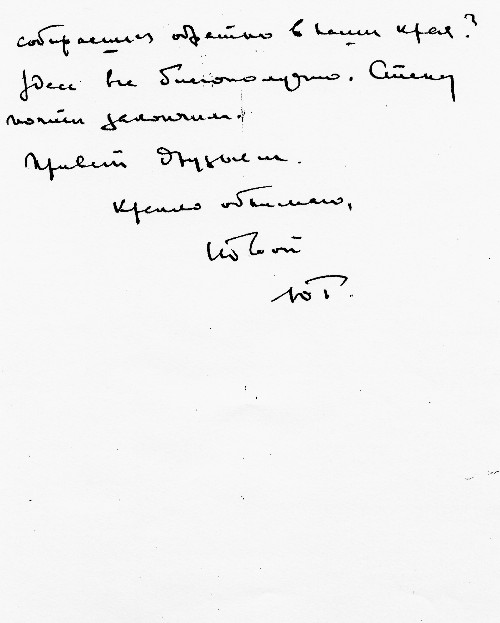 собираешься обратно в наши края?
Здесь все благополучно. Стену
почти закончили.
Привет друзьям.
Крепко обнимаю,
твой
ЮГ.